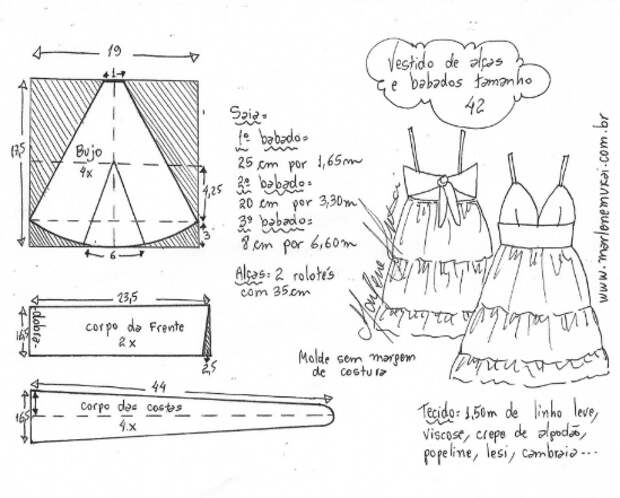 19
1
17,5
Bujo
4x
4,25
3
6
23,5
dobra
corpo da Frente
2x
2,5
44
16,5
corpo das costas
4.x
Saia=
1º babado=
25 cm por 1,65m
2º babado=
20 cm por 3,30m
3º babado=
8 cm por 6,60m
Alças: 2 rolotés
com 35cm
Vestido de alças
e babados tamanho
42
Molde sem margem
de costura
Tecido= 1,50m de linho leve,
viscose, crepe de algodão,
popeline, lesi, cambraia...
www.marlenemukai.com.br